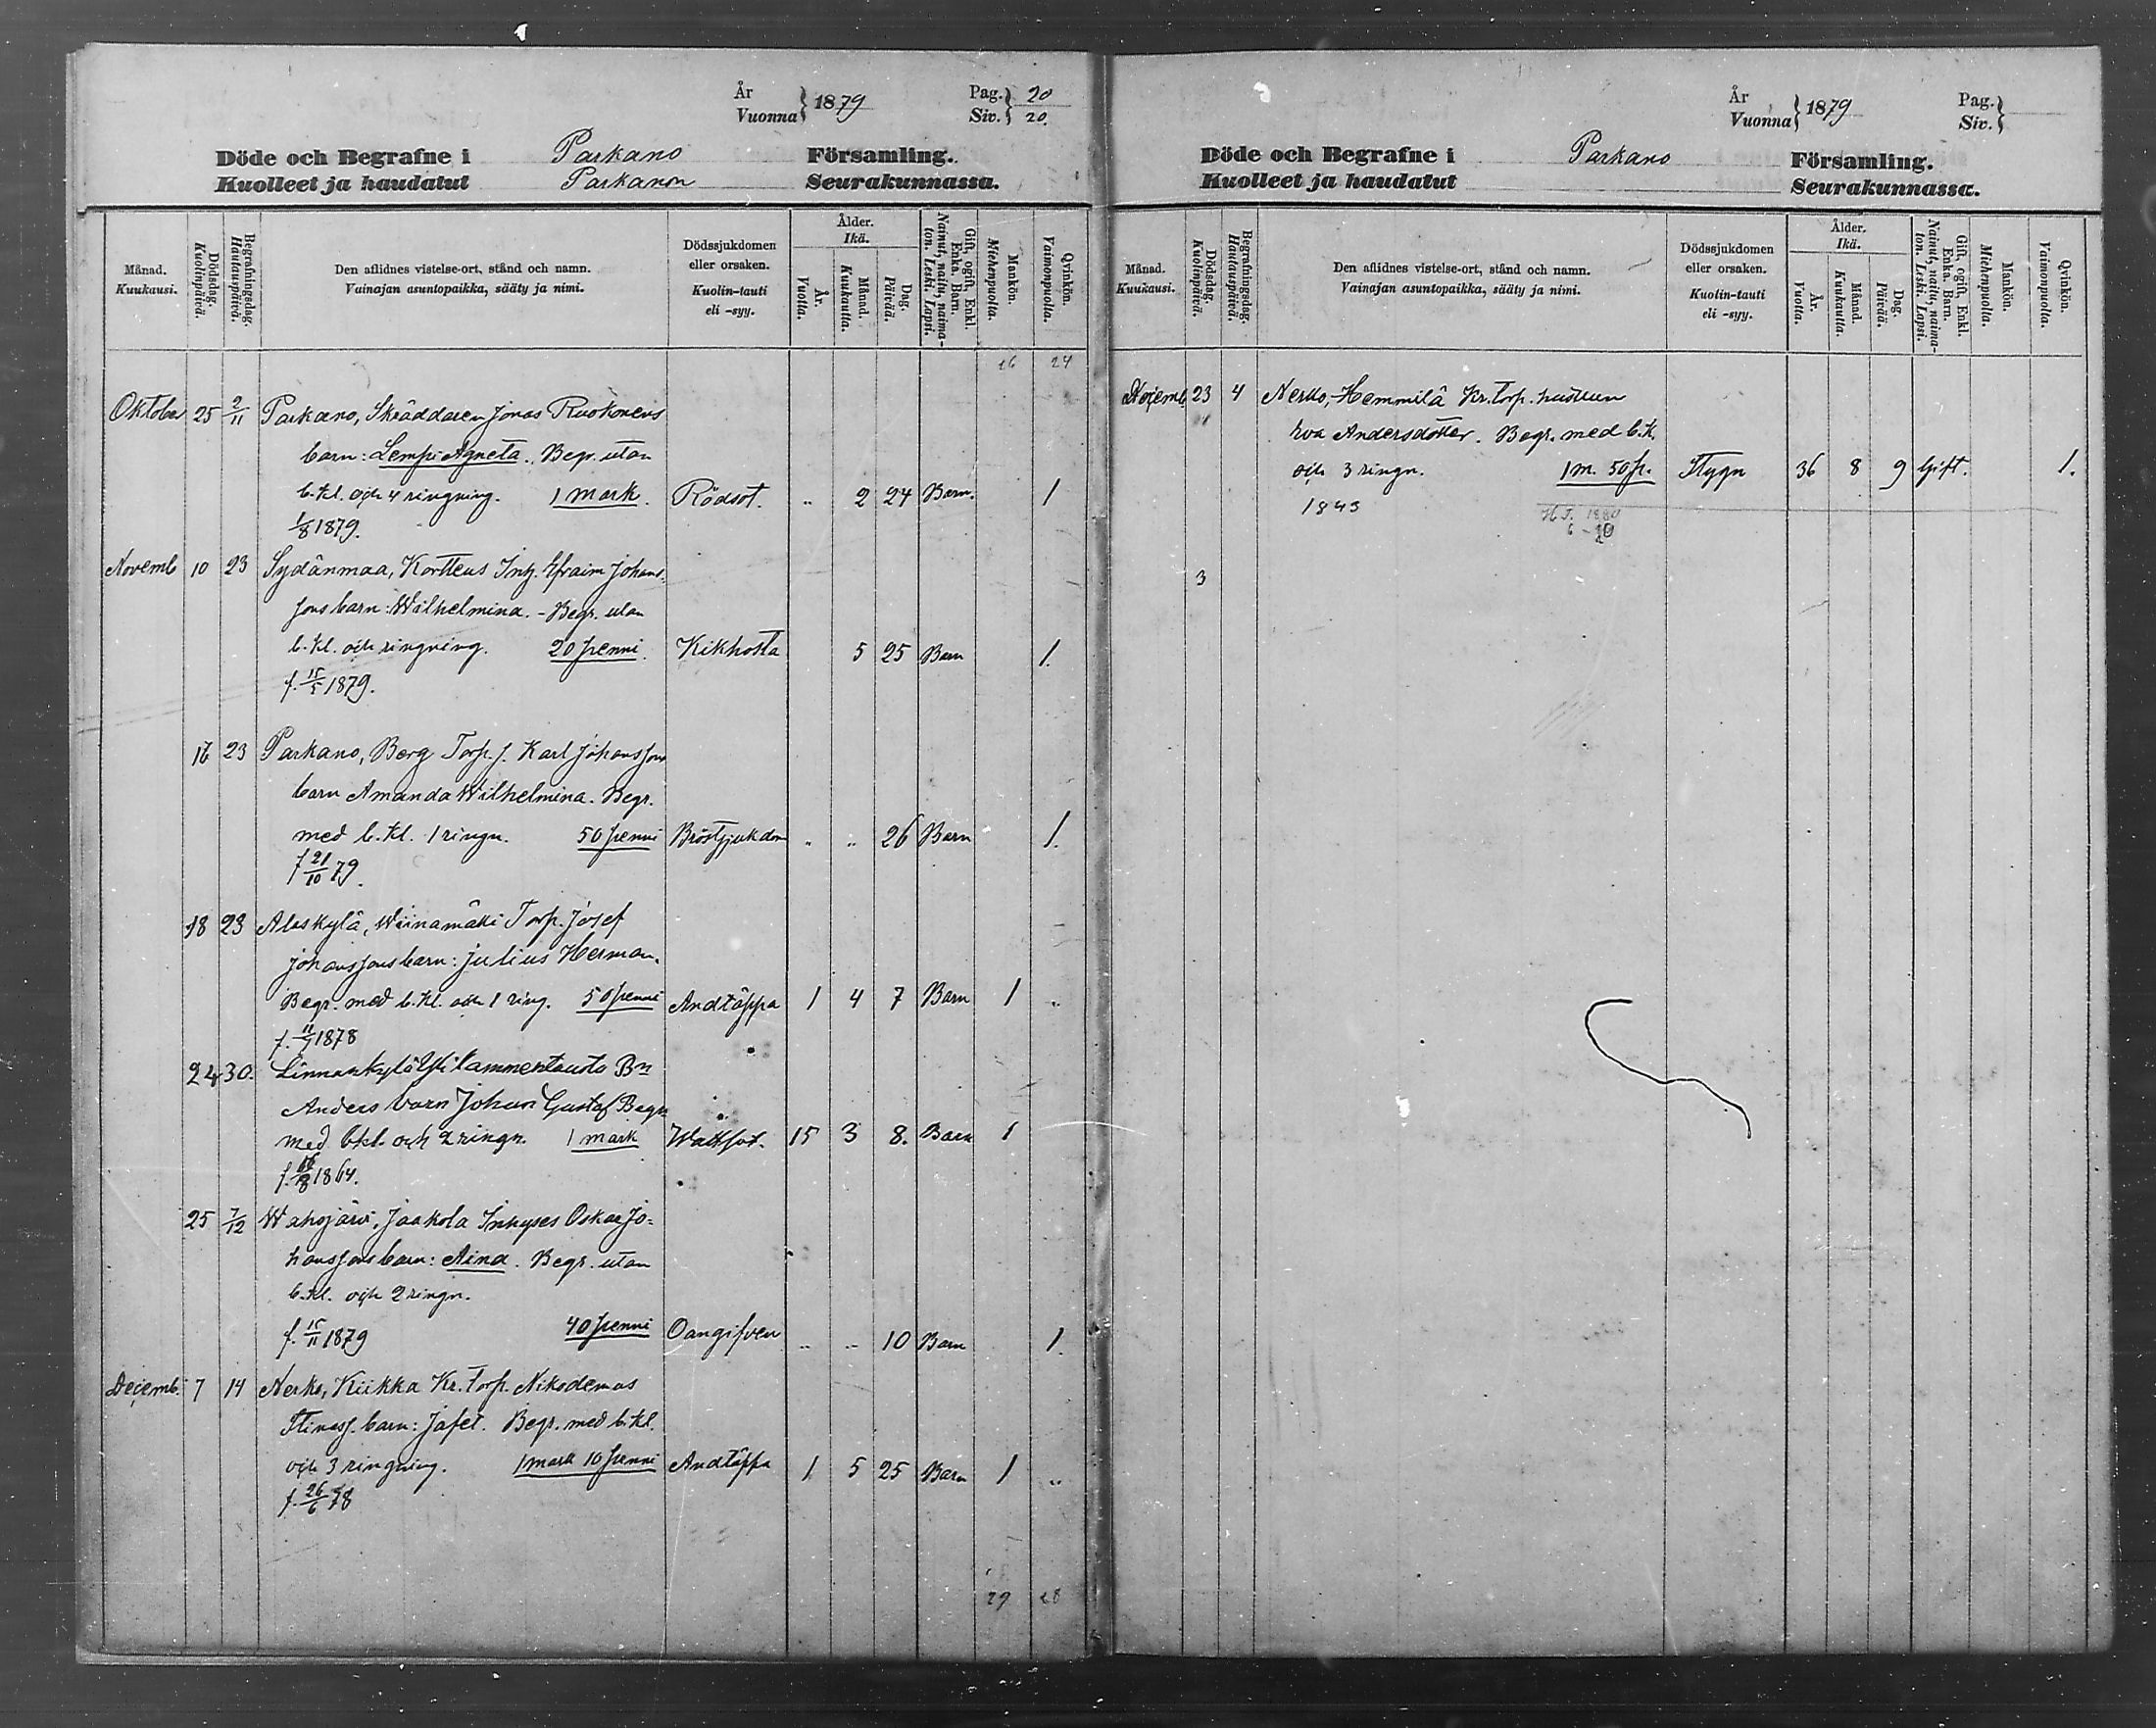 År
Vuonna } 1879
Pag.
Siv. } 20
20.
Döde och Begrafne i Parkano Församling.
Kuolleet ja haudatut Parkanon Seurakunnassa.
Månad.
Kuukausi.
Dödsdag.
Kuolinpäivä.
Begrafningsdag.
Hautauspäivä.
Den aflidnes vistelse-ort, stånd och namn.
Vainajan asuntopaikka, sääty ja nimi.
Dödssjukdomen
eller orsaken.
Kuolin-tauti
eli -syy.
Ålder.
Ikä.
År.
Vuotta.
Månad.
Kuukautta.
Dag.
Päivää.
Gift, ogift, Enkl.
Enka. Barn.
Nainut, naitu, naima-
ton. Leski. Lapsi.
Mankön.
Miehenpuolta.
Qvinkön.
Vaimonpuolta.
26 24
Oktober 25 2/11 Parkano, Skräddaren Jonas Ruokonens
barn: Lempi Agneta. Begr. utan
b.kl. och 4 ringning. 1 mark. Rödsot. .. 2 24 Barn. 1
1/8 1879.
Novemb 10 23 Sydänmaa, Kortteus Inh. Efraim Johans-
sons barn: Wilhelmina. - Begr. utan
b.kl. och ringning. 20 penni. Kikhosta 5 25 Barn 1.
f. 15/5 1879.
16 23 Parkano, Berg Torp. s. Karl Johanssons
barn Amanda Wilhelmina. Begr.
med b.kl. 1 ringn. 50 penni Bröstsjukdom .. .. 26 Barn 1.
f 21/10 79.
18 23 Alaskylä, Wiinamäki Torp. Josef
Johanssons barn: Julius Herman.
Begr. med b.kl. och 1 ring. 50 penni Andtäppa 1 4 7 Barn 1 ..
f. 11/7 1878
24 30. Linnankylä Ylilammentausta Bn
Anders barn Johan Gustaf Begr
med bkl. och 2 ringn. 1 mark Wattsot. 15 3 8. Barn 1
f. 16/8 1864.
25 7/12 Wahojärvi, Jaakola Inhyses Oskar Jo-
hanssons barn: Aina. Begr. utan
b.kl. och 2 ringn.
f. 15/11 1879 40 penni Oangifven .. .. 10 Barn 1.
Decemb. 7 14 Nerko, Kiikka Kr. Torp. Nikodemus
barn: Jafet. Begr. med b.kl.
och 3 ringning. 1 mark 10 penni Andtäppa 1 5 25 Barn 1 ..
f. 26/6 78
29 28
År
Vuonna } 1879
Pag.
Siv. }
Döde och Begrafne i Parkano Församling.
Kuolleet ja haudatut Seurakunnassa.
Månad.
Kuukausi.
Dödsdag.
Kuolinpäivä.
Begrafningsdag.
Hautauspäivä.
Den aflidnes vistelse-ort, stånd och namn.
Vainajan asuntopaikka, sääty ja nimi.
Dödssjukdomen
eller orsaken.
Kuolin-tauti
eli -syy.
Ålder.
Ikä.
År.
Vuotta.
Månad.
Kuukautta.
Dag.
Päivää.
Gift, ogift, Enkl.
Enka. Barn.
Nainut, naitu, naima-
ton. Leski. Lapsi.
Mankön.
Miehenpuolta.
Qvinkön.
Vaimonpuolta.
23 4 Nerko, Hemmilä Kr. Torp. hustrun
Eva Andersdotter. Begr. med b.k.
och 3 ringn. 1 m. 50 p. Stygn 36 8 9 Gift. 1.
1843
3